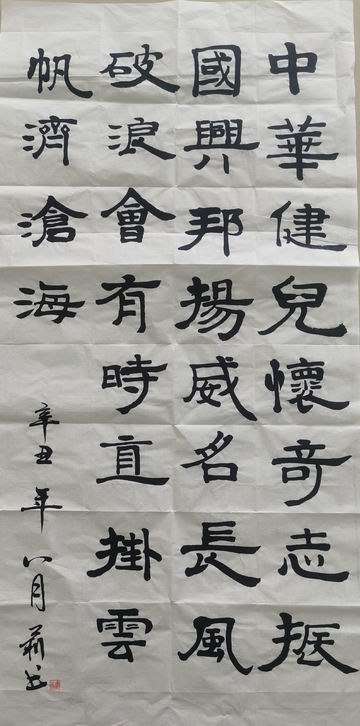 中華健兒懷竒志振
國興邦揚威名長風
破浪會有時直掛雲
帆濟滄海
辛丑年八月